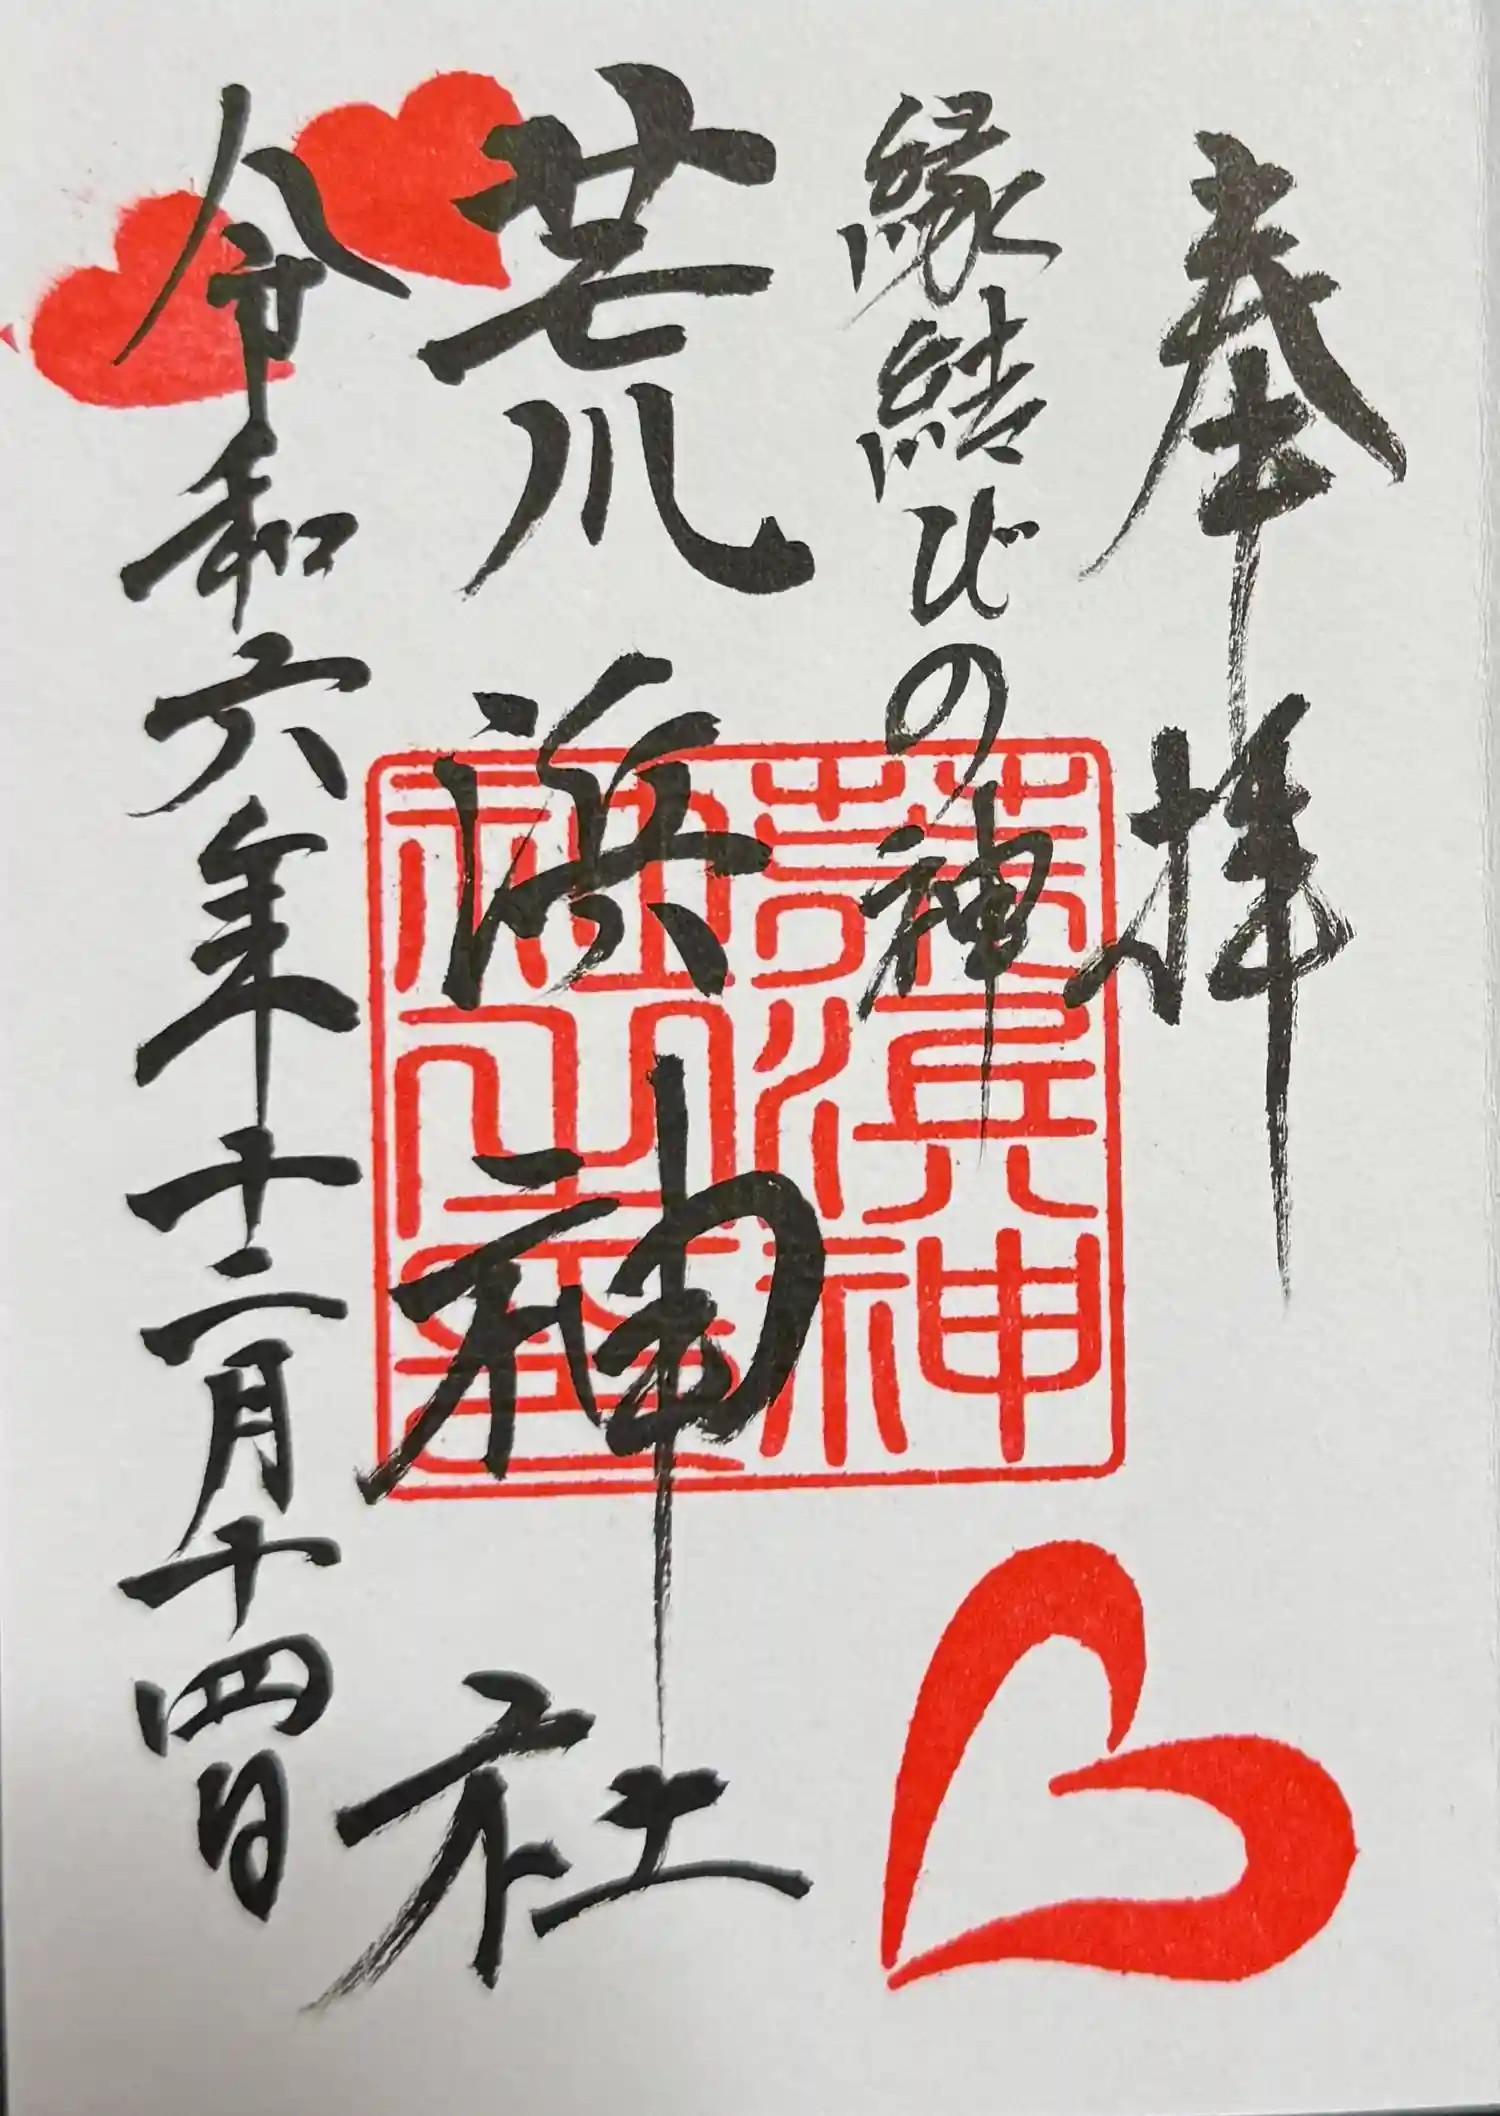 奉拝
縁結びの神
荒浜神社
令和六年十二月十四日
荒浜神
社之